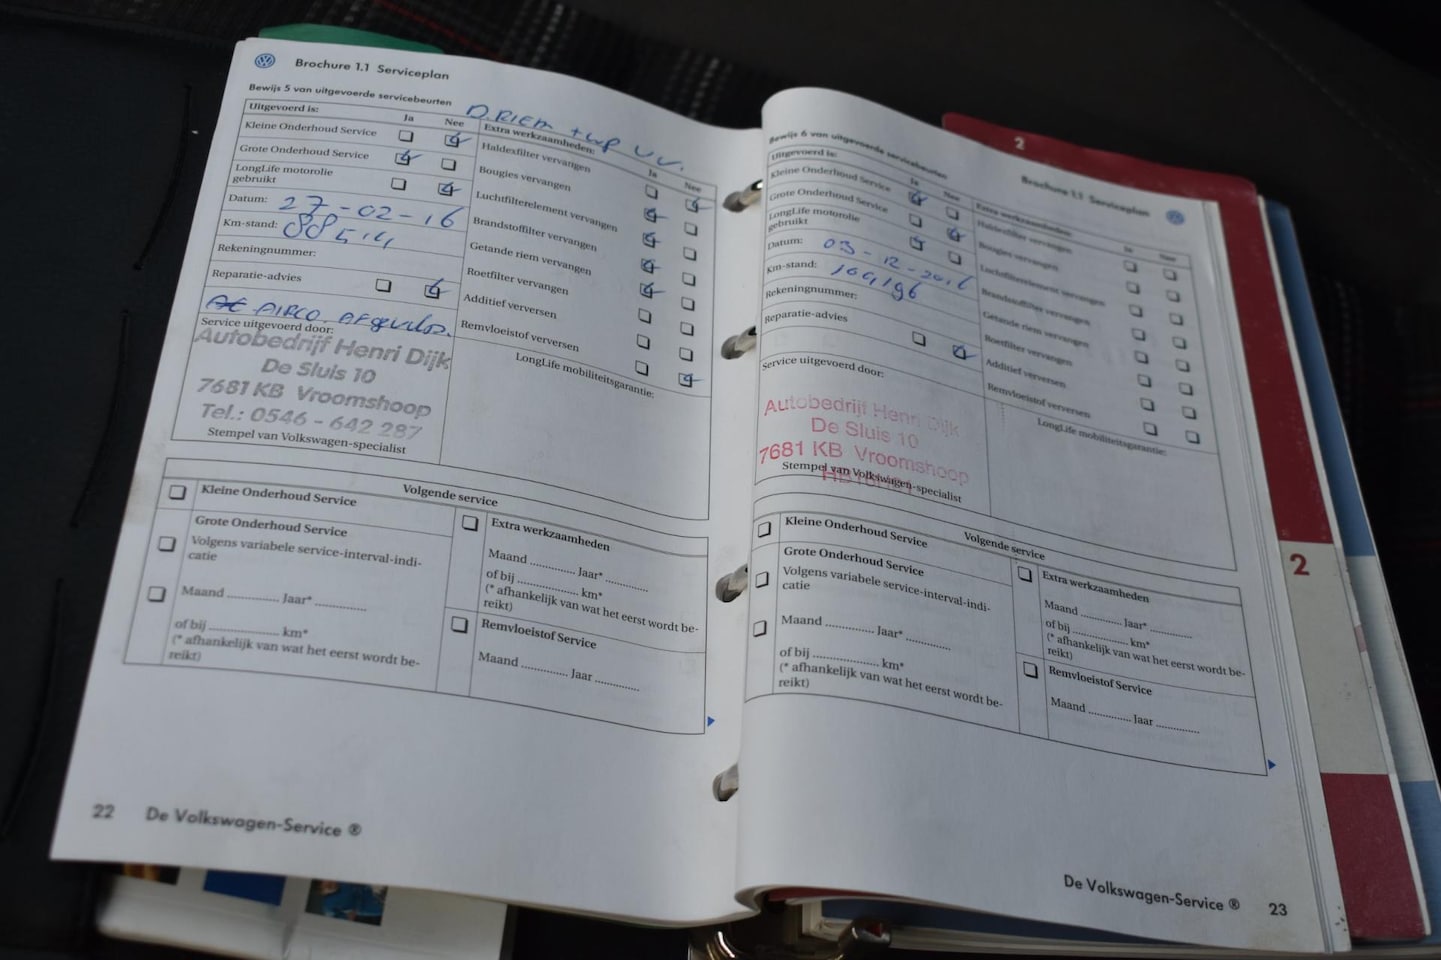 Brochure 1.1 Serviceplan
Bewijs 5 van uitgevoerde servicebeurten
D.RIEM + WP VV.
Uitgevoerd is:
Ja Nee
Kleine Onderhoud Service
Grote Onderhoud Service
LongLife motorolie
gebruikt
Datum: 27-02-16
Km-stand: 88514
Rekeningnummer:
Reparatie-advies
AIRCO Afgevuld.
Service uitgevoerd door:
Autobedrijf Henri Dijk
De Sluis 10
7681 KB Vroomshoop
Tel.: 0546 - 642 287
Stempel van Volkswagen-specialist
Extra werkzaamheden:
Ja Nee
Haldexfilter vervangen
Bougies vervangen
Luchtfilterelement vervangen
Brandstoffilter vervangen
Getande riem vervangen
Roetfilter vervangen
Additief verversen
Remvloeistof verversen
LongLife mobiliteitsgarantie:
Volgende service
Kleine Onderhoud Service
Grote Onderhoud Service
Volgens variabele service-interval-indi-
catie
Maand ............. Jaar* .............
of bij ................. km*
(* afhankelijk van wat het eerst wordt be-
reikt)
Extra werkzaamheden
Maand ........... Jaar* ...........
of bij ............... km*
(* afhankelijk van wat het eerst wordt be-
reikt)
Remvloeistof Service
Maand ............ Jaar ...........
22 De Volkswagen-Service ®
2
Brochure 1.1 Serviceplan
Bewijs 6 van uitgevoerde servicebeurten
Uitgevoerd is:
Ja Nee
Kleine Onderhoud Service
Grote Onderhoud Service
LongLife motorolie
gebruikt
Datum: 03-12-2016
Km-stand: 104196
Rekeningnummer:
Reparatie-advies
Service uitgevoerd door:
Autobedrijf Henri Dijk
De Sluis 10
7681 KB Vroomshoop
Stempel van Volkswagen-specialist
Extra werkzaamheden:
Ja Nee
Haldexfilter vervangen
Bougies vervangen
Luchtfilterelement vervangen
Brandstoffilter vervangen
Getande riem vervangen
Roetfilter vervangen
Additief verversen
Remvloeistof verversen
LongLife mobiliteitsgarantie:
Volgende service
Kleine Onderhoud Service
Grote Onderhoud Service
Volgens variabele service-interval-indi-
catie
Maand ............. Jaar* .............
of bij ................. km*
(* afhankelijk van wat het eerst wordt be-
reikt)
Extra werkzaamheden
Maand ........... Jaar* ...........
of bij ............... km*
(* afhankelijk van wat het eerst wordt be-
reikt)
Remvloeistof Service
Maand ............ Jaar ...........
2
De Volkswagen-Service ® 23